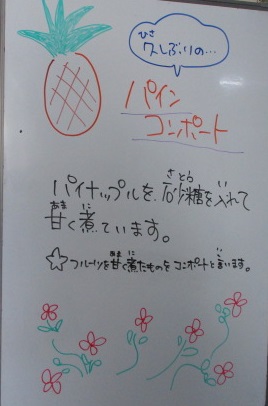 久しぶりの…
パイン
コンポート
パイナップルを砂糖を入れて
甘く煮ています。
☆フルーツを甘く煮たものをコンポートと言います。